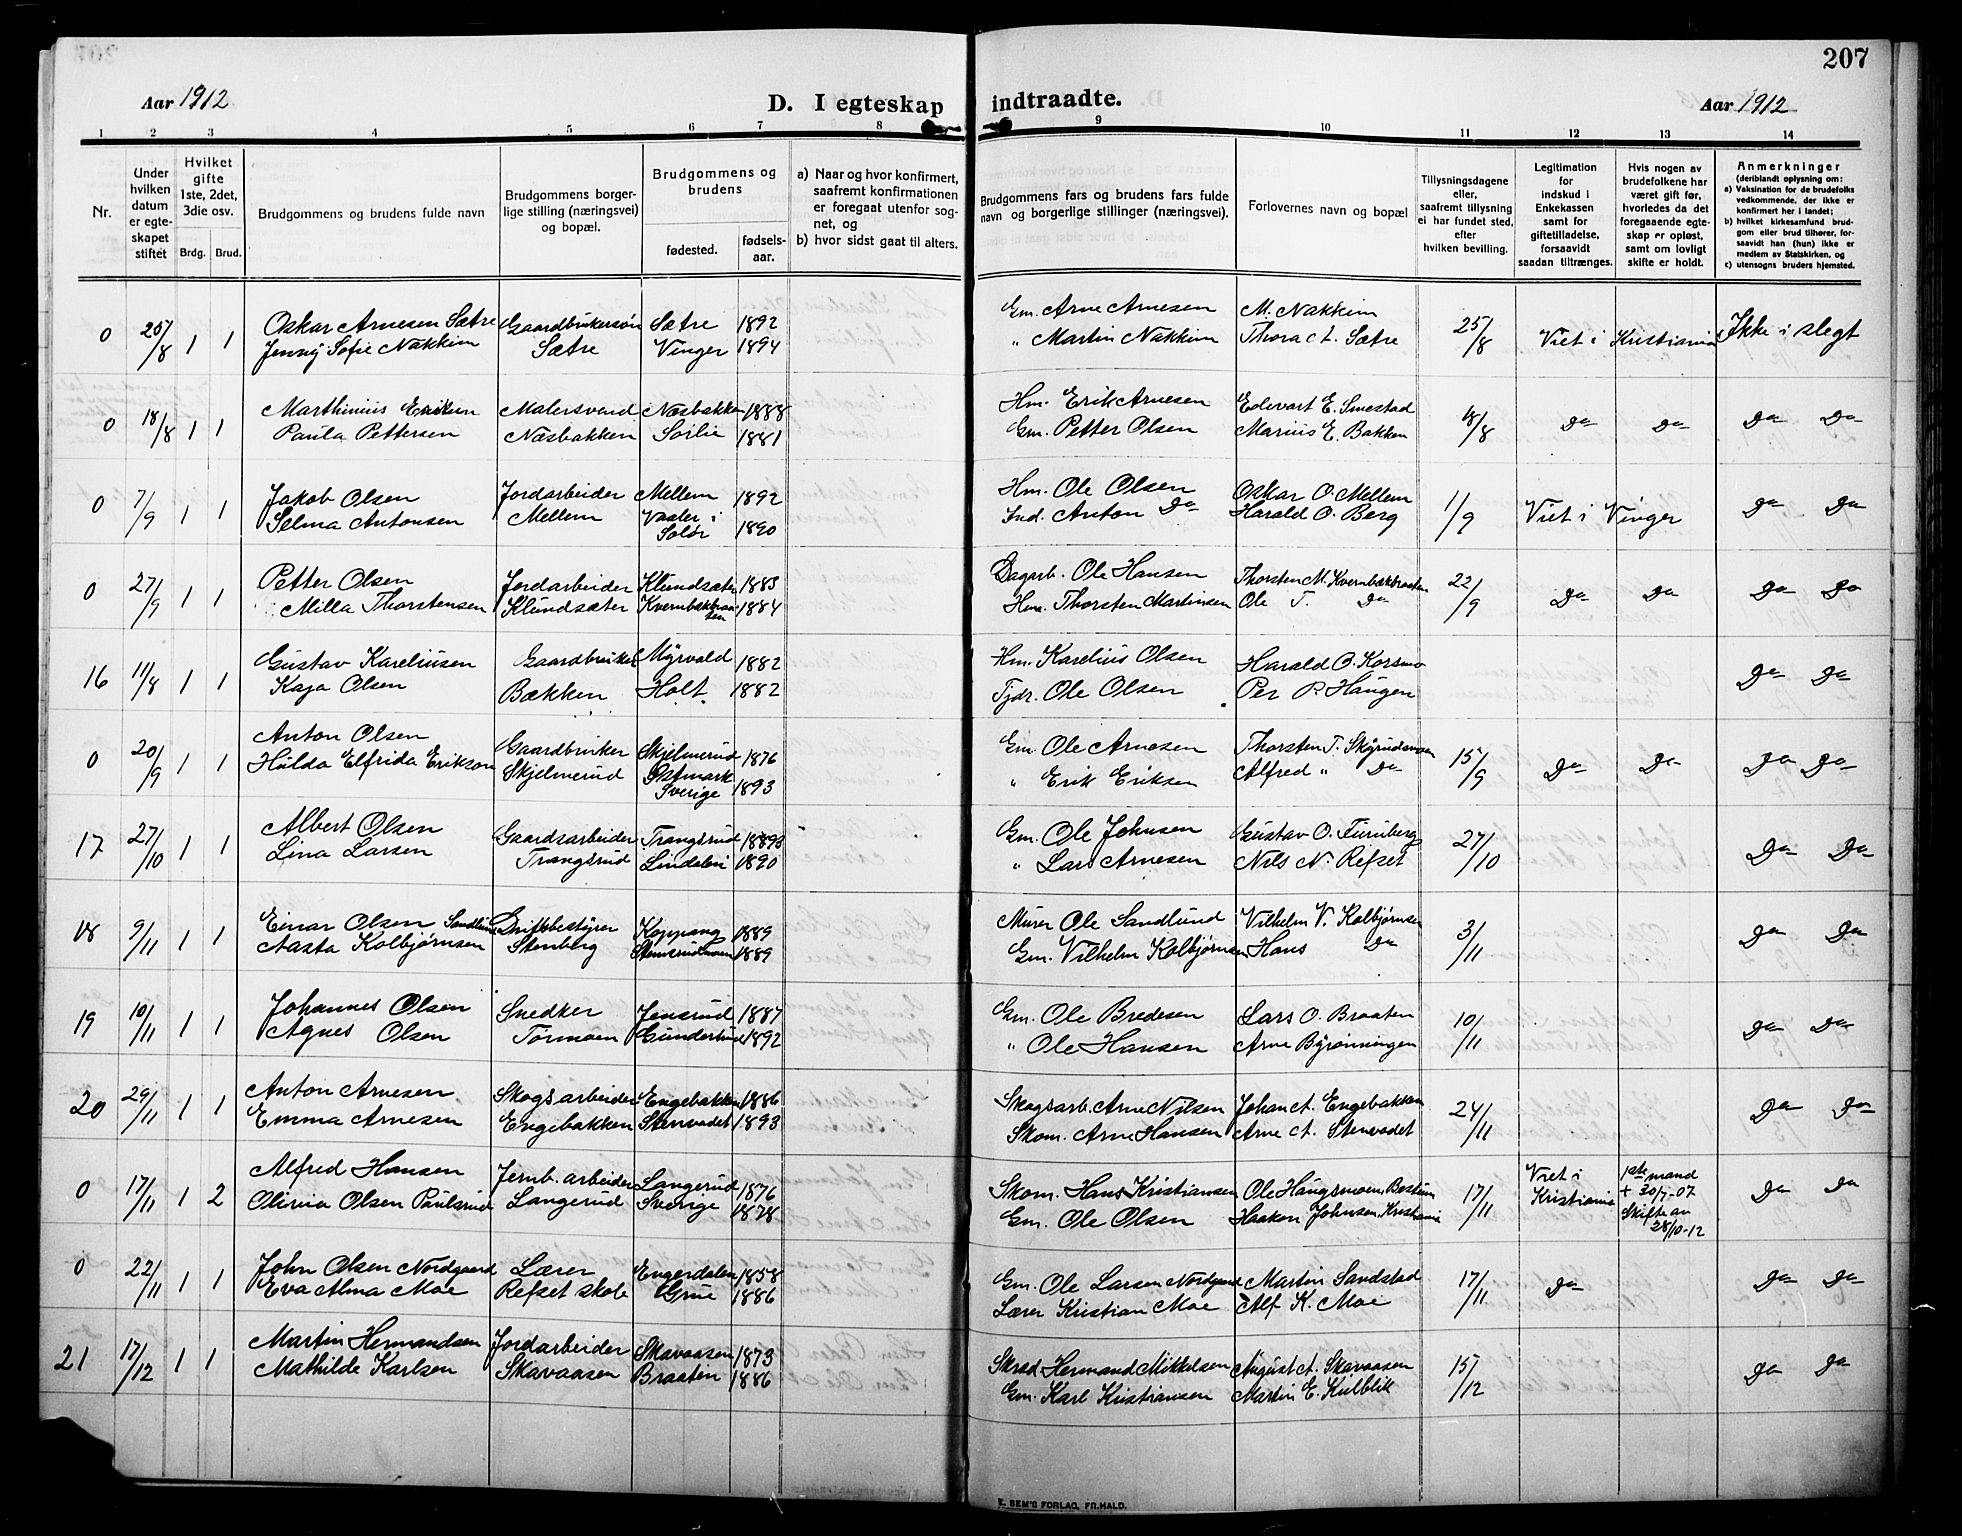 207
Aar 1912
D. I egteskap indtraadte.
Aar 1912
1 2 3 4 5 6 7 8 9 10 11 12 13 14
Nr.
Under hvilken datum er egteskapet stiftet
Hvilket gifte 1ste, 2det, 3die osv.
Brdg. Brud.
Brudgommens og brudens fulde navn
Brudgommens borgerlige stilling (næringsvei) og bopæl.
Brudgommens og brudens
fødested.
fødselsaar.
a) Naar og hvor konfirmert, saafremt konfirmationen er foregaat utenfor sognet, og
b) hvor sidst gaat til alters.
Brudgommens fars og brudens fars fulde navn og borgerlige stillinger (næringsvei).
Forlovernes navn og bopæl
Tillysningsdagene eller, saafremt tillysning ei har fundet sted, efter hvilken bevilling.
Legitimation for indskud i Enkekassen samt for giftetilladelse, forsaavidt saadan tiltrænges.
Hvis nogen av brudefolkene har været gift før, hvorledes da det foregaaende egteskap er opløst, samt om lovligt skifte er holdt.
Anmerkninger
(deriblandt oplysning om:
a) Vaksination for de brudefolks vedkommende, der ikke er konfirmert her i landet;
b) hvilket kirkesamfund brudgom eller brud tilhører, forsaavidt han (hun) ikke er medlem av Statskirken, og
c) utensogns bruders hjemsted.
0 25/8 1 1 Oskar Arnesen Sætre Gaardbrukersøn Sætre 1892 Gm. Arne Arnesen M. Nakkim 25/8 Viet i Kristiania Ikke i slegt
Jenny Sofie Nakkim Sætre Vinger 1894 " Martin Nakkim Thora A. Sætre
0 18/8 1 1 Marthinius Eriksen Malersvend Næsbakken 1888 Hm. Erik Arnesen Edevart E. Smestad 18/8 Do Do Do Do
Paula Pettersen Næsbakken Sørlie 1881 Gm. Petter Olsen Marius E. Bakken
0 7/9 1 1 Jakob Olsen Jordarbeider Mellem 1892 Hm. Ole Olsen Oskar O. Mellem 1/9 Viet i Vinger Do Do
Selma Antonsen Mellem Vaaler i Solør 1890 Ind. Anton Do Harald O. Berg
0 27/9 1 1 Petter Olsen Jordarbeider Klundsæter 1883 Dagarb. Ole Hansen Thorsten M. Kvernbækbraaten 22/9 Do Do Do Do
Milla Thorstensen Klundsæter Kvernbækbraaten 1884 Hm. Thorsten Martinsen Ole T. Do
16 11/8 1 1 Gustav Kareliusen Gaardbruker Myrvold 1882 Hm. Karelius Olsen Harald O. Korsmo Do Do
Kaja Olsen Bækken Holt 1882 Tjdr. Ole Olsen Per P. Haugen
0 20/9 1 1 Anton Olsen Gaardbruker Skjelmerud 1876 Gm. Ole Arnesen Thorsten T. Skyrudsmoen 15/9 Do Do Do Do
Hulda Elfrida Erikson Skjelmerud Østmark Sverige 1893 " Erik Eriksen Alfred " Do
17 27/10 1 1 Albert Olsen Gaardsarbeider Trangsrud Gm. Ole Johnsen Gustav O. Furuberg 27/10 Do Do
Lina Larsen Trangsrud Lindalen 1890 " Lars Arnesen Nils N. Refset
18 9/11 1 1 Einar Olsen Sandlund Driftsbestyrer Koppang 1889 Murer Ole Sandlund Vilhelm V. Kolbjørnsen 3/11 Do Do
Aasta Kolbjørnsen Stenberg Stensrudmoen 1889 Gm. Vilhelm Kolbjørnsen Hans Do
19 10/11 1 1 Johannes Olsen Snedker Jensrud 1887 Gm. Ole Bredesen Lars O. Braaten 10/11 Do Do
Agnes Olsen Tørmoen Gundersrud 1892 " Ole Hansen Arne Byrønningen
20 29/11 1 1 Anton Arnesen Skogsarbeider Engebakken 1886 Skogsarb. Arne Nilsen Johan A. Engebakken 24/11 Do Do
Emma Arnesen Engebakken Stenvadet 1893 Skom. Arne Hansen Arne A. Stenvadet
0 17/11 1 2 Alfred Hansen Jernb. arbeider Langerud 1876 Skom. Hans Kristiansen Ole Haugsmoen, Bestum 17/11 Viet i Kristiania 1ste mand + 30/7-07 Skifte av 28/10-12 Do Do
Olivia Olsen Paulsrud Langerud Sverige 1878 Gm. Ole Olsen Haakon Johnsen, Kristiania
0 22/11 1 1 John Olsen Nordgaard Lærer Engerdalen 1858 Gm. Ole Larsen Nordgaard Martin Sandstad 17/11 Do Do Do
Eva Alma Moe Refset skole Grue 1886 Lærer Kristian Moe Alf K. Moe
21 17/12 1 1 Martin Hermandsen Jordarbeider Skavaasen 1873 Skred. Hermand Mikkelsen August A. Skavaasen 15/12 Do Do
Mathilde Karlsen Skavaasen Braaten 1886 Gm. Karl Kristiansen Martin E. Kulblik
E. SEM'S FORLAG, FR.HALD.